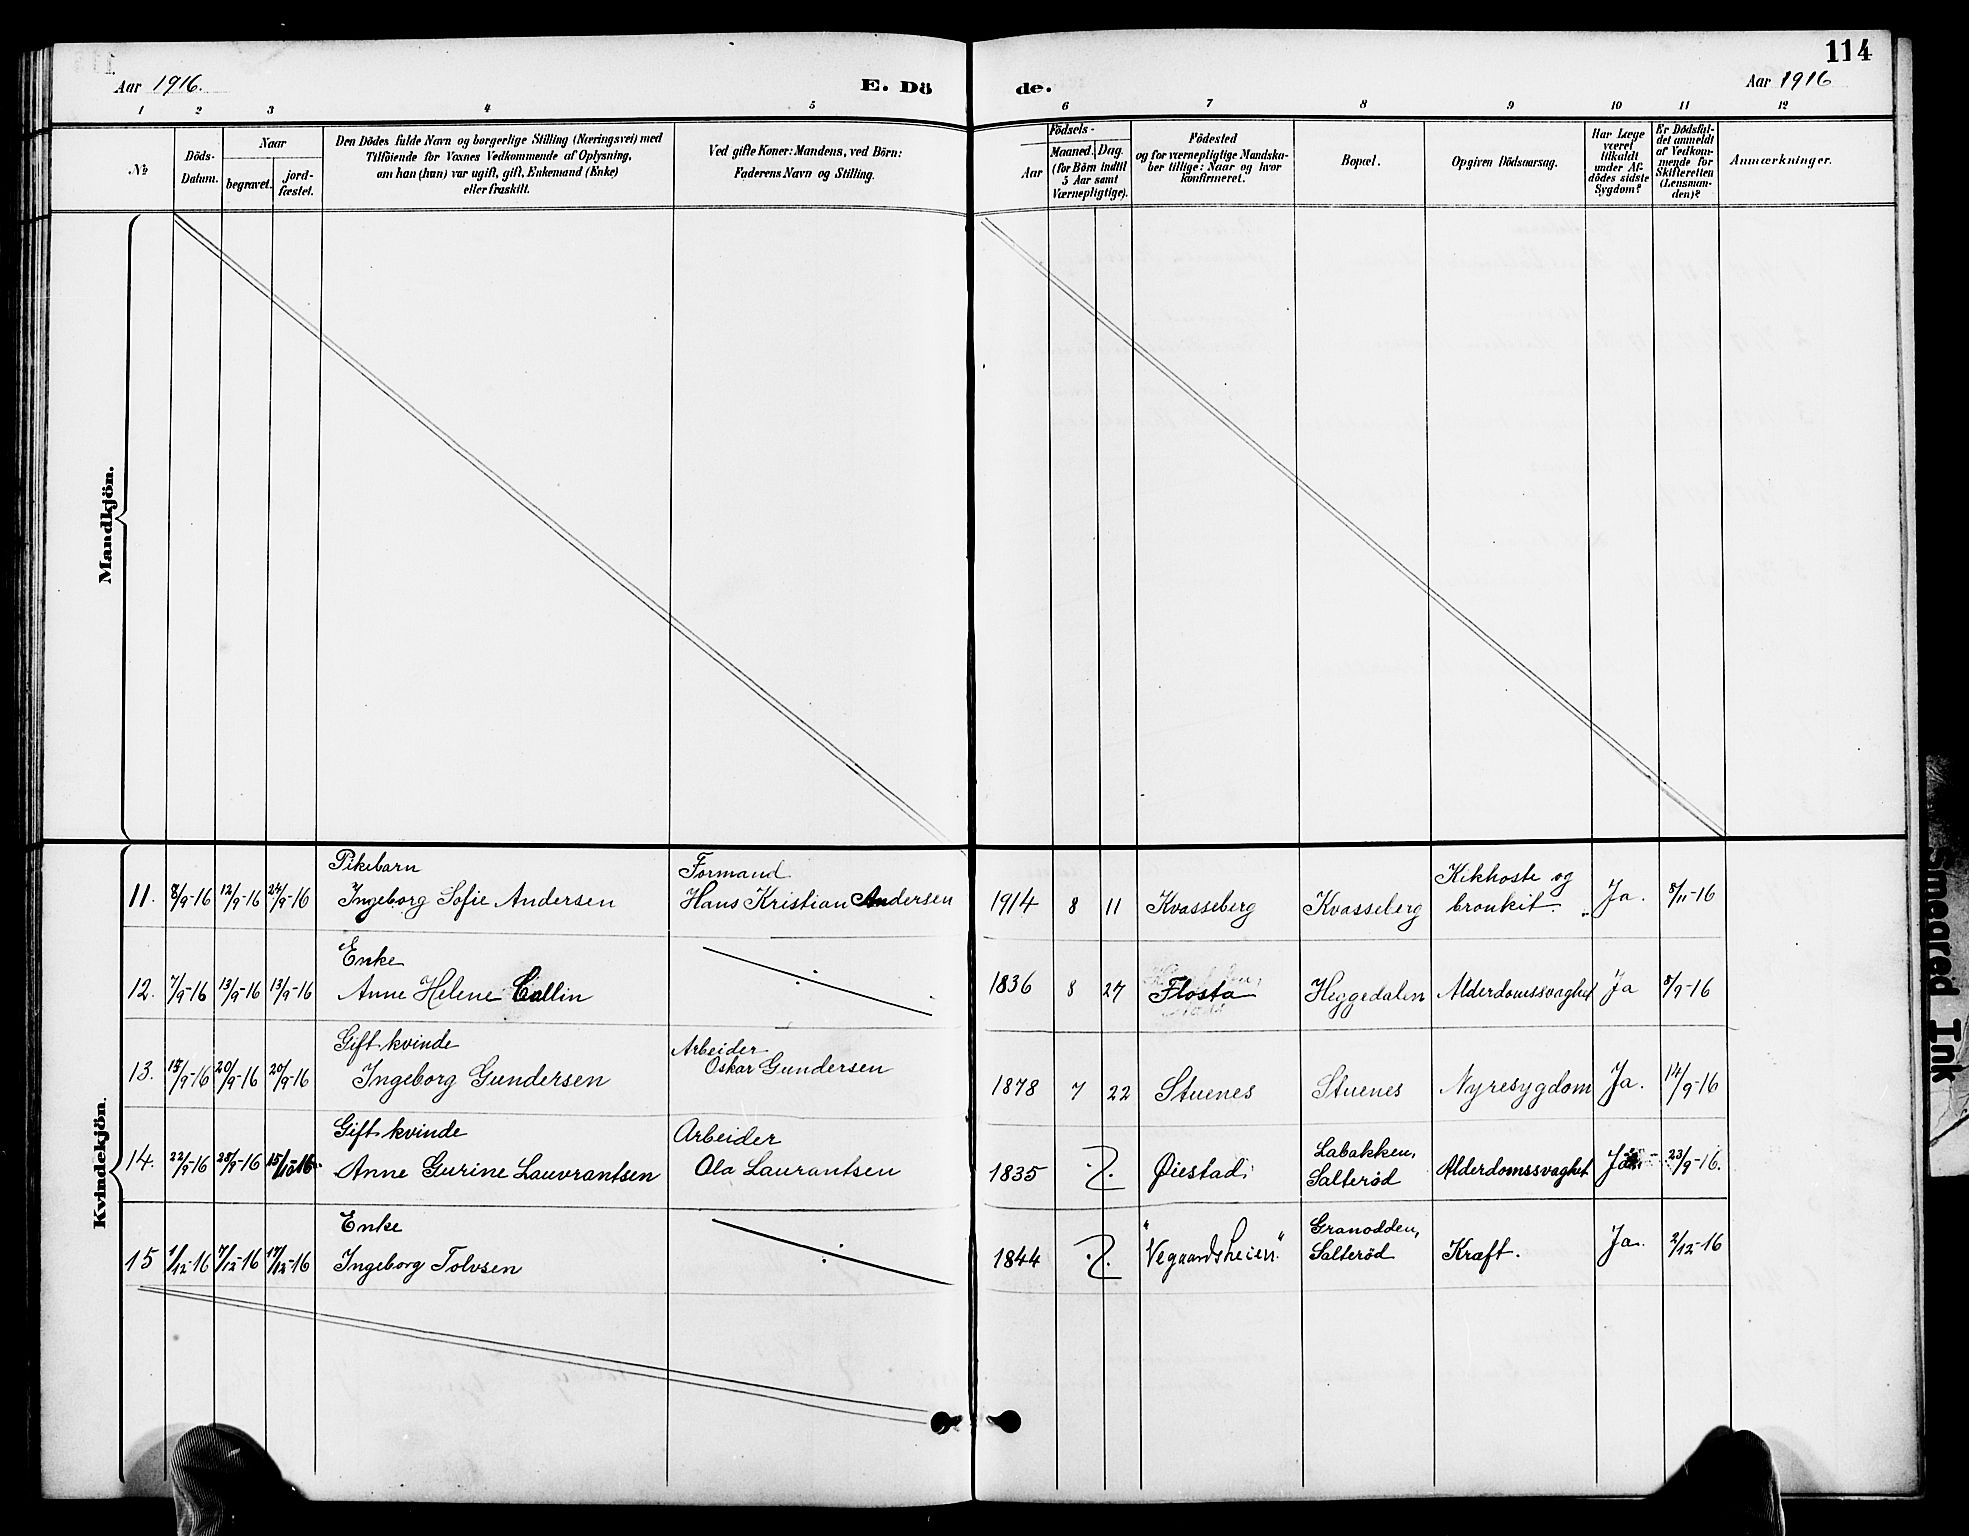 114
Aar 1916.
E. Dö
de.
Aar 1916
1 2 3 4 5 6 7 8 9 10 11 12
No
Döds-
Datum.
Naar
begravet.
jord-
fæstet.
Den Dödes fulde Navn og borgerlige Stilling (Næringsvei) med
Tilföiende for Voxnes Vedkommende af Oplysning,
om han (hun) var ugift, gift, Enkemand (Enke)
eller fraskilt.
Ved gifte Koner: Mandens, ved Börn:
Faderens Navn og Stilling.
Födsels-
Aar
Maaned.
Dag.
(for Börn indtil
5 Aar samt
Værnepligtige).
Födested
og for værnepligtige Mandska-
ber tillige: Naar og hvor
konfirmeret.
Bopæl.
Opgiven Dödsaarsag.
Har Læge
været
tilkaldt
under Af-
dödes sidste
Sygdom?
Er Dödsfal-
det anmeldt
af Vedkom-
mende for
Skifteretten
(Lensman-
den)?
Anmærkninger.
Mandkjön.
Kvindekjön.
Pikebarn
Formand
Kikhoste og
11. 8/9-16 12/9-16 24/9-16 Ingeborg Sofie Andersen Hans Kristian Andersen 1914 8 11 Kvasseberg Kvasseberg bronkit. Ja. 8/11-16
Enke
12. 7/9-16 13/9-16 13/9-16 Anne Helene Callin 1836 8 27 Flosta Heggedalen Alderdomssvaghet Ja 8/9-16
Gift kvinde
Arbeider
13. /9-16 20/9-16 20/9-16 Ingeborg Gundersen Oskar Gundersen 1878 7 22 Stuenes Stuenes Nyresygdom Ja. 14/9-16
Gift kvinde
Arbeider
Labakken,
14. 22/9-16 28/9-16 15/10-16. Anne Gurine Lauvrantsen Ola Laurantsen 1835 ? Øiestad. Salterød Alderdomssvaghet Ja 23/9-16.
Enke
Granodden,
15 1/12-16 7/12-16 17/12-16 Ingeborg Tolvsen 1844 ? "Vegaardsheien" Salterød Kræft. Ja. 2/12-16
Smeared Ink